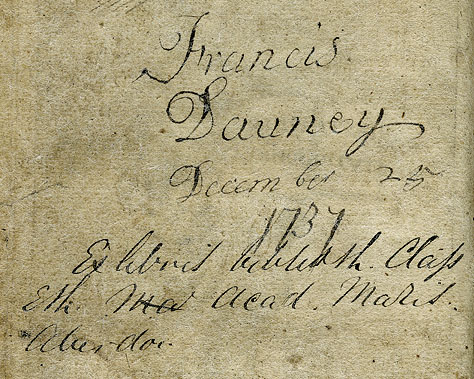 Francis
Dauney.
December 25
1737
Ex libris biblioth. Class
Eth. Mar Acad. Maris.
Aberdon.